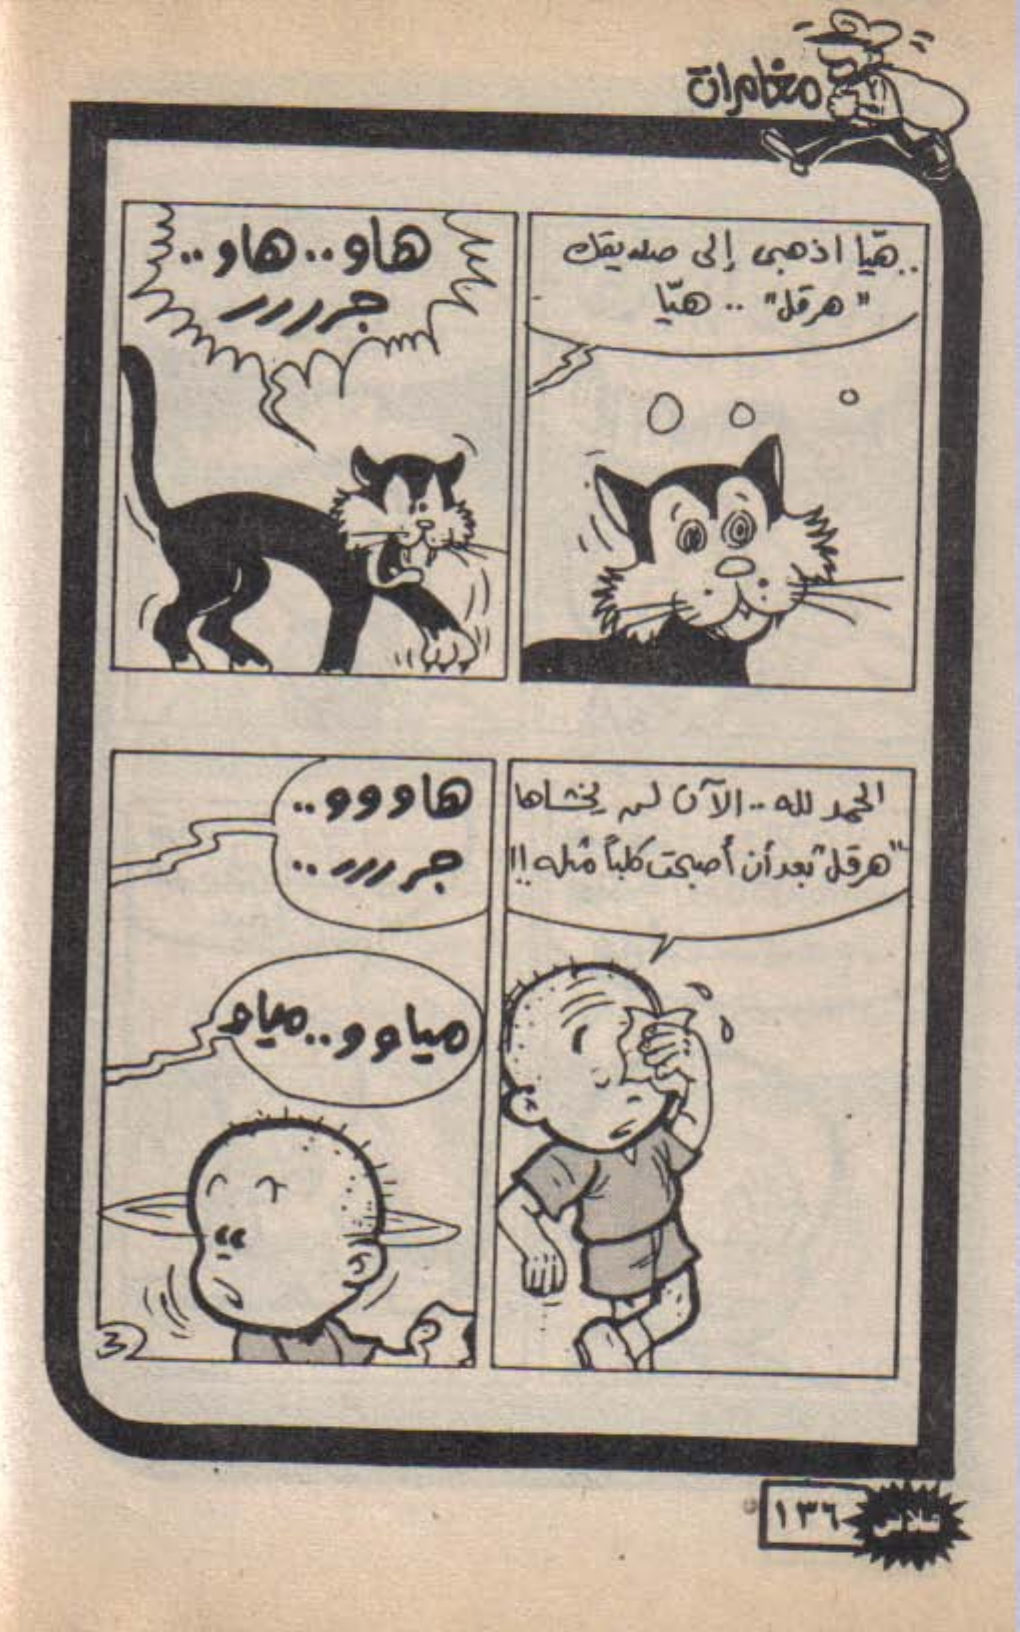 مغامرات
..هيّا اذهبى إلى صديقك
"هرقل" .. هيّا
هاو..هاو..
جرررر
الحمد لله..الآن لن يخشاها
"هرقل" بعد أن أصبحت كلباً مثله!!
هاووو..
جرررر..
مياوو..مياو
3
فلاش
١٣٦